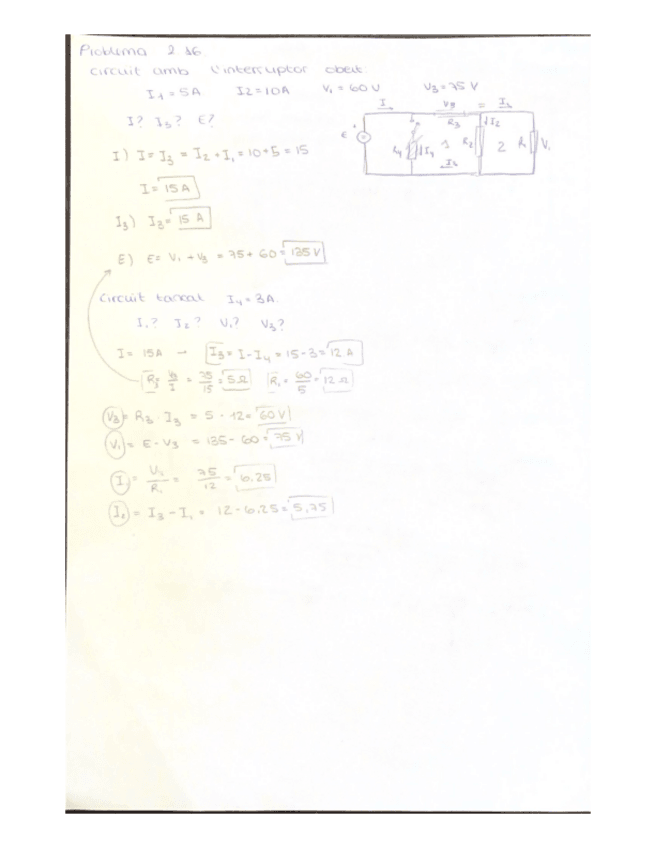 Problema 2.16
Circuit amb l'interruptor obert
I1 = 5A I2 = 10A V1 = 60V V3 = 75 V
I? I3? E?
I V3 I1
R3 I2
E R4 I4 1 R2 2 R1 V1
I) I = I3 = I2 + I1 = 10+5 = 15
I = 15 A
I3) I3 = 15 A
E) E = V1 + V3 = 75 + 60 = 135 V
Circuit tancat I4 = 3A.
I1? I2? V1? V3?
I = 15A → I3 = I - I4 = 15 - 3 = 12 A
R3 = V3/I = 75/15 = 5Ω R1 = 60/5 = 12 Ω
V3 = R3 · I3 = 5 · 12 = 60 V
V1 = E - V3 = 135 - 60 = 75 V
I1 = V1/R1 = 75/12 = 6.25
I2 = I3 - I1 = 12 - 6.25 = 5,75